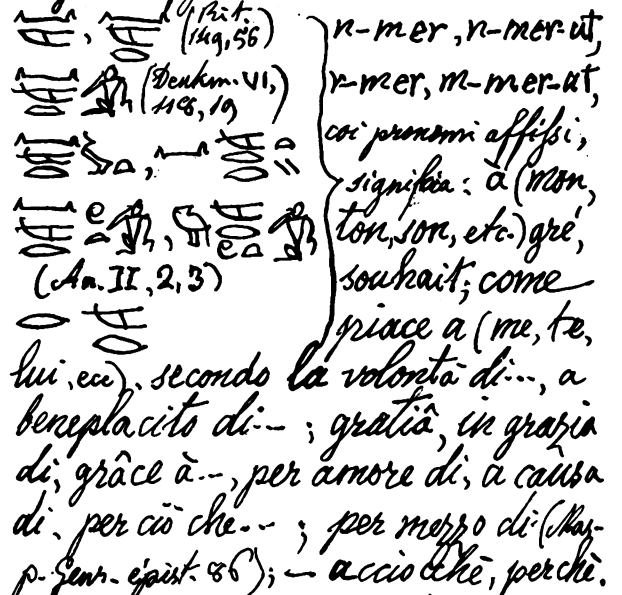 (Rit. 149, 56) n-mer, n-mer-ut,
(Denkm. VI, 118, 19) r-mer, m-mer-ut,
coi pronomi affissi,
significa: à (mon,
ton, son, etc.) gré,
(An. II, 2, 3) souhait; come
piace a (me, te,
lui, ecc). secondo la volontà di..., a
beneplacito di...; gratiâ, in grazia
di, grâce à..., per amore di, a causa
di, per ciò che...; per mezzo di (Mas-
p. Genr. épist. 86); — acciocchè, perchè.